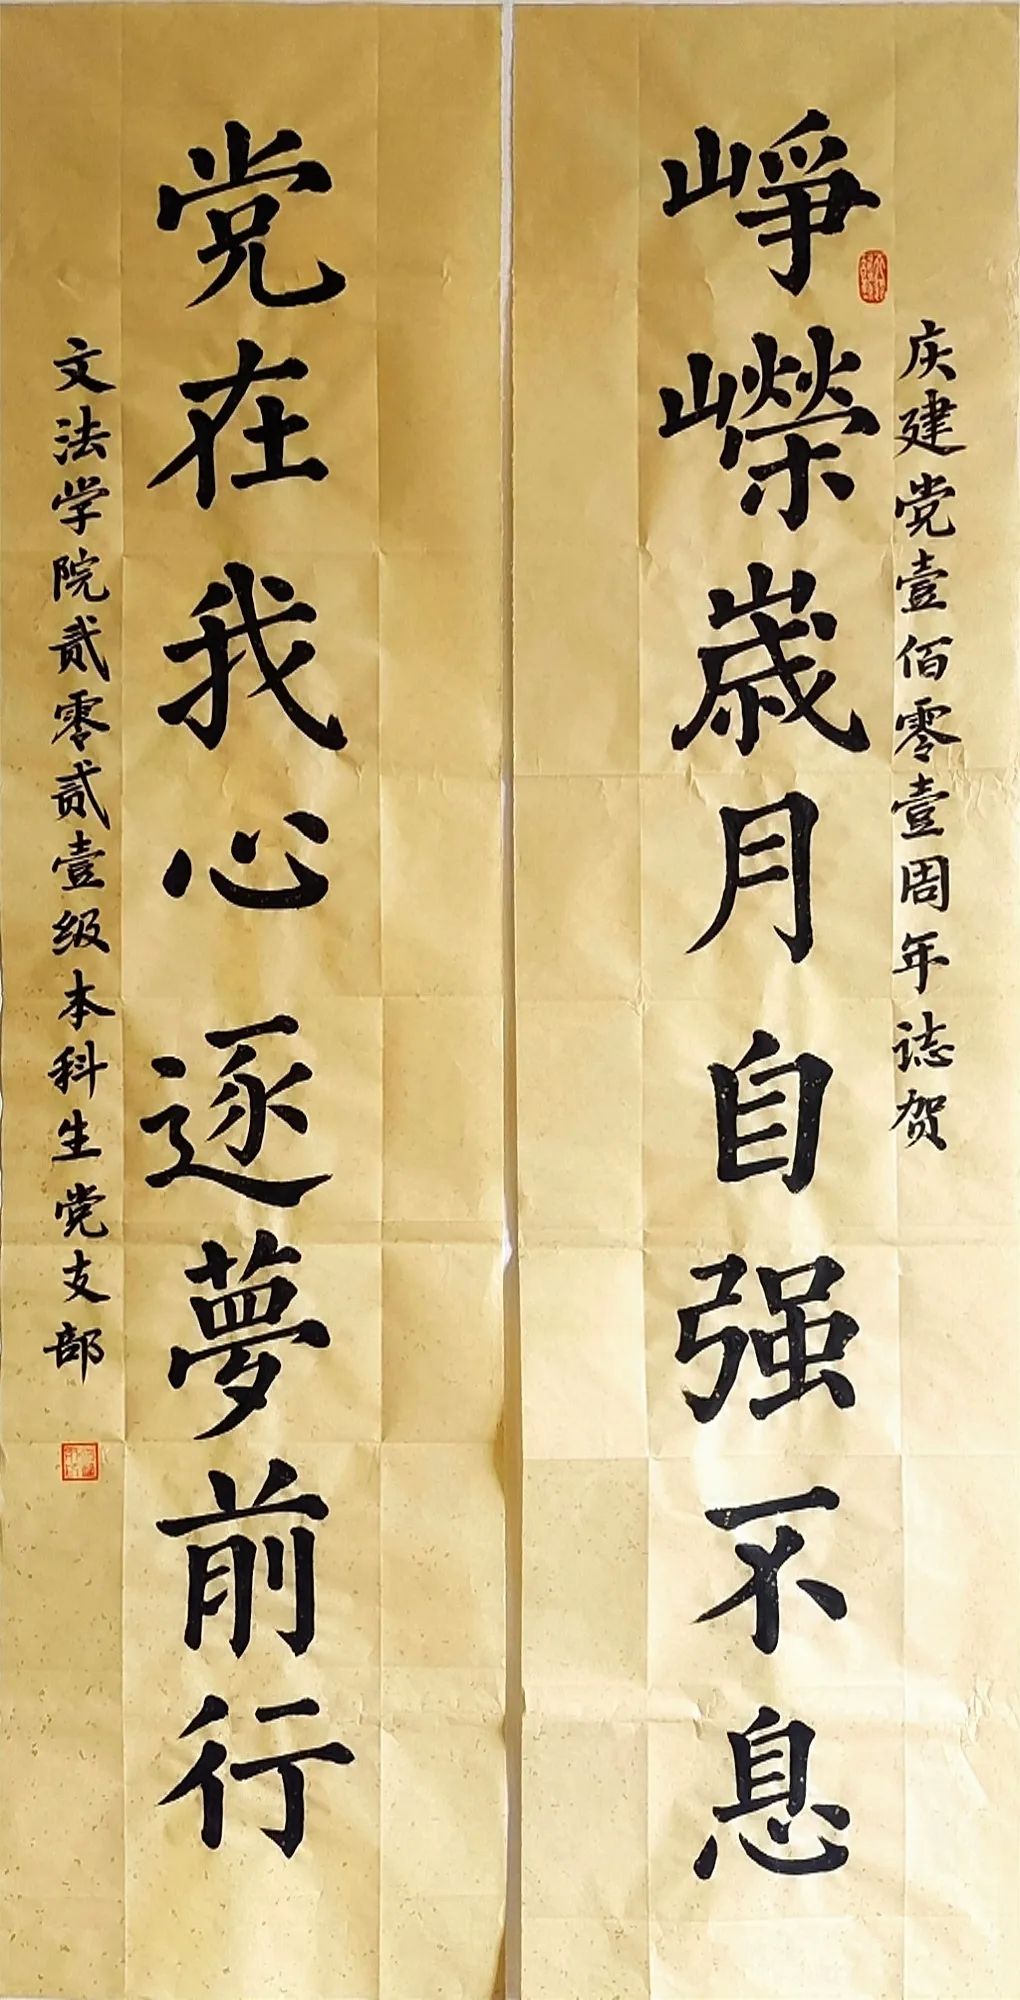 庆建党壹佰零壹周年誌贺
峥嶸歲月自强不息
党在我心逐夢前行
文法学院贰零贰壹级本科生党支部